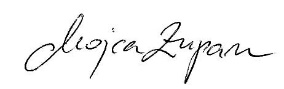 Mojca Zupan